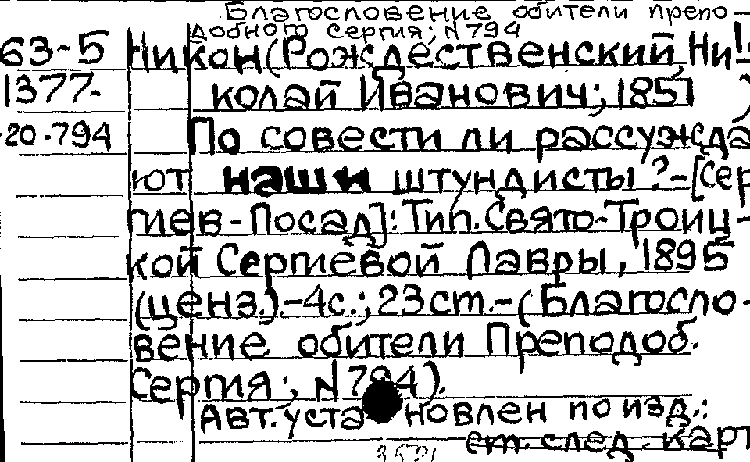 Благословение обители препо-
добного Сергия; N 794
63-5 Никон (Рождественский, Ни-
1377- колай Иванович; 1851
-20-794 По совести ли рассужда
ют наши штундисты? - [Сер
гиев-Посад]: Тип. Свято-Троиц-
кой Сергиевой Лавры, 1895
(ценз.). - 4с.; 23 cm. - (Благосло-
вение обители Преподоб.
Сергия; N 794).
Авт. установлен по изд.:
см. след. карт